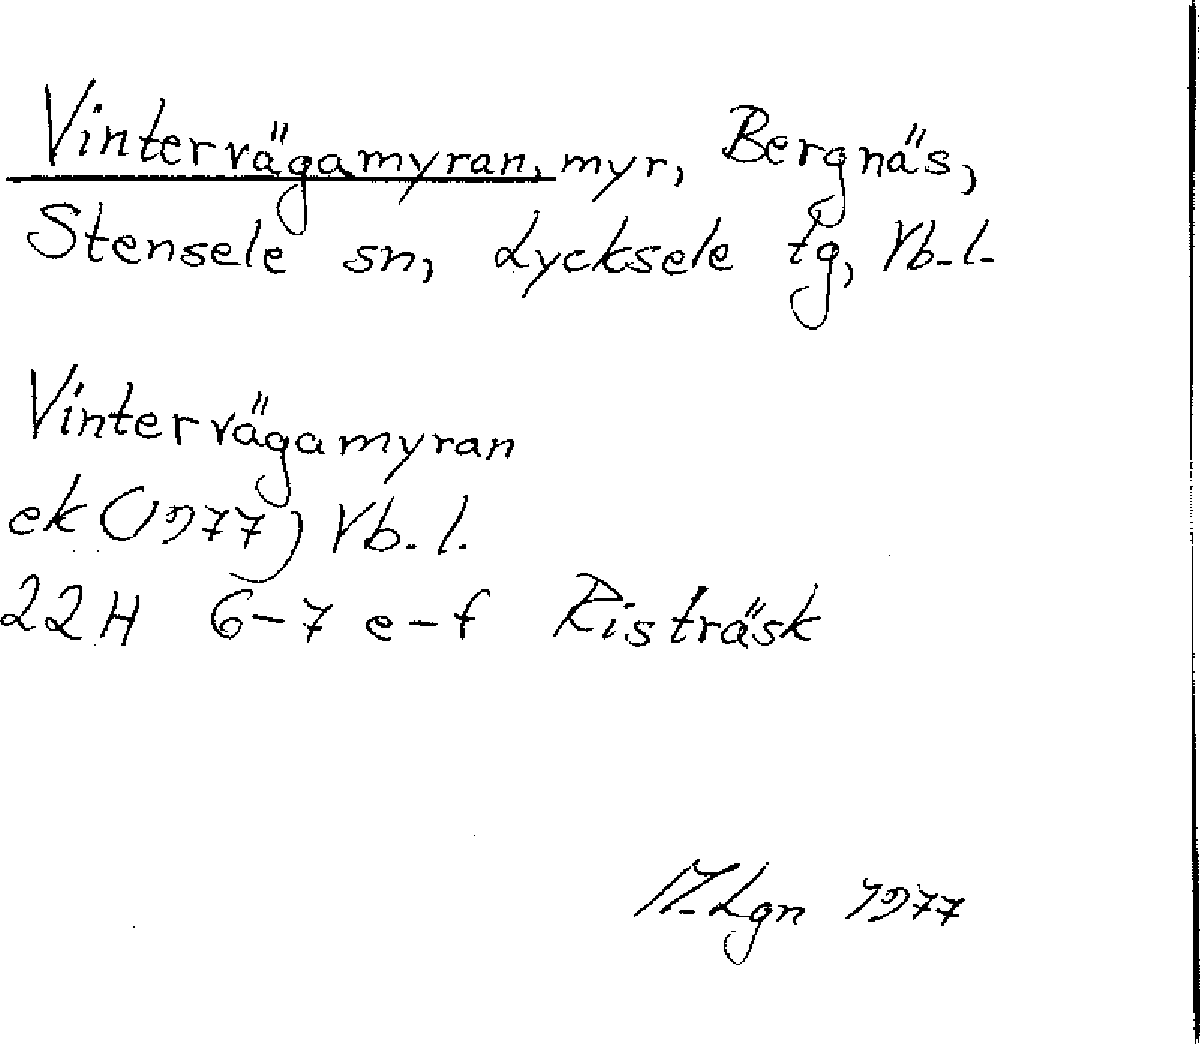 Vintervägamyran, myr, Bergnäs,
Stensele sn, Lycksele tg, Vb. l.
Vintervägamyran
ek (1977) Vb. l.
22H 6-7 e-f Risträsk
M. Lgn 1977